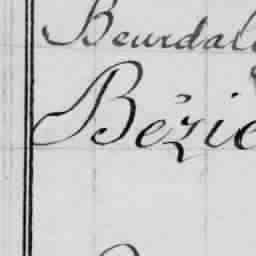 Beurdal
Bézie